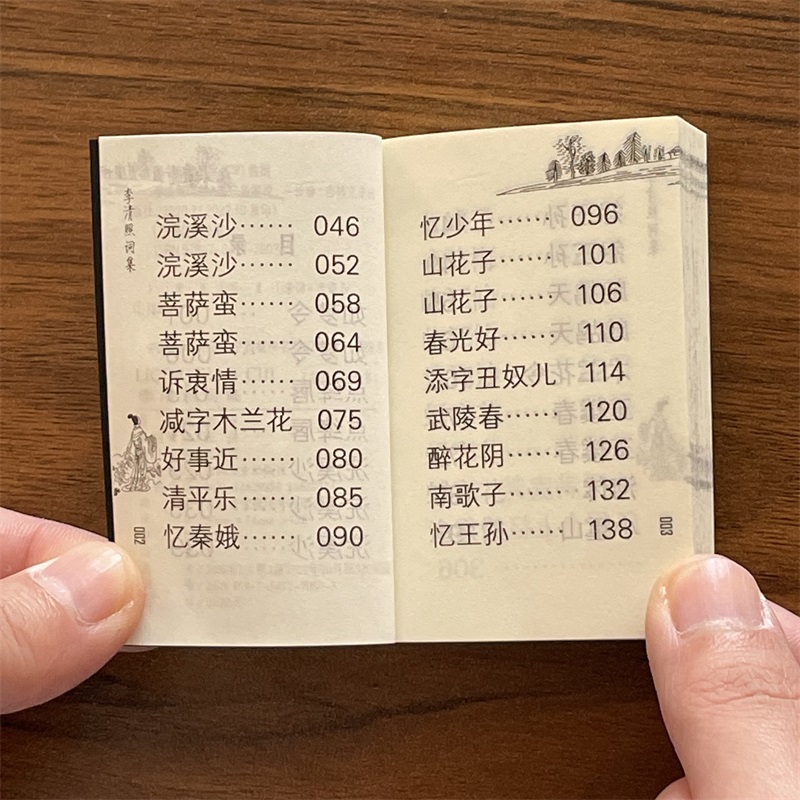 李清照词集
浣溪沙······ 046
浣溪沙······ 052
菩萨蛮······ 058
菩萨蛮······ 064
诉衷情······ 069
减字木兰花 075
好事近······ 080
清平乐······ 085
忆秦娥······ 090
002
忆少年······ 096
山花子······ 101
山花子······ 106
春光好······ 110
添字丑奴儿 114
武陵春······ 120
醉花阴······ 126
南歌子······ 132
忆王孙······ 138
003